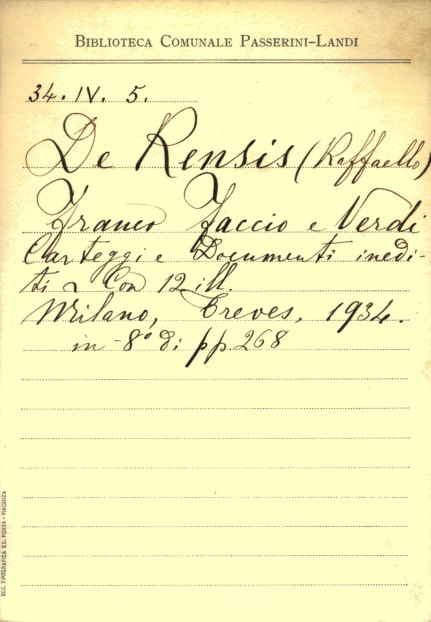 BIBLIOTECA COMUNALE PASSERINI-LANDI
34. IV. 5.
De Rensis (Raffaello)
Franco Faccio e Verdi
Carteggi e Documenti inedi-
ti Con 12 ill.
Milano, Treves, 1934.
in-8° di pp. 268
SOC. TIPOGRAFICA ED. PORTA - PIACENZA